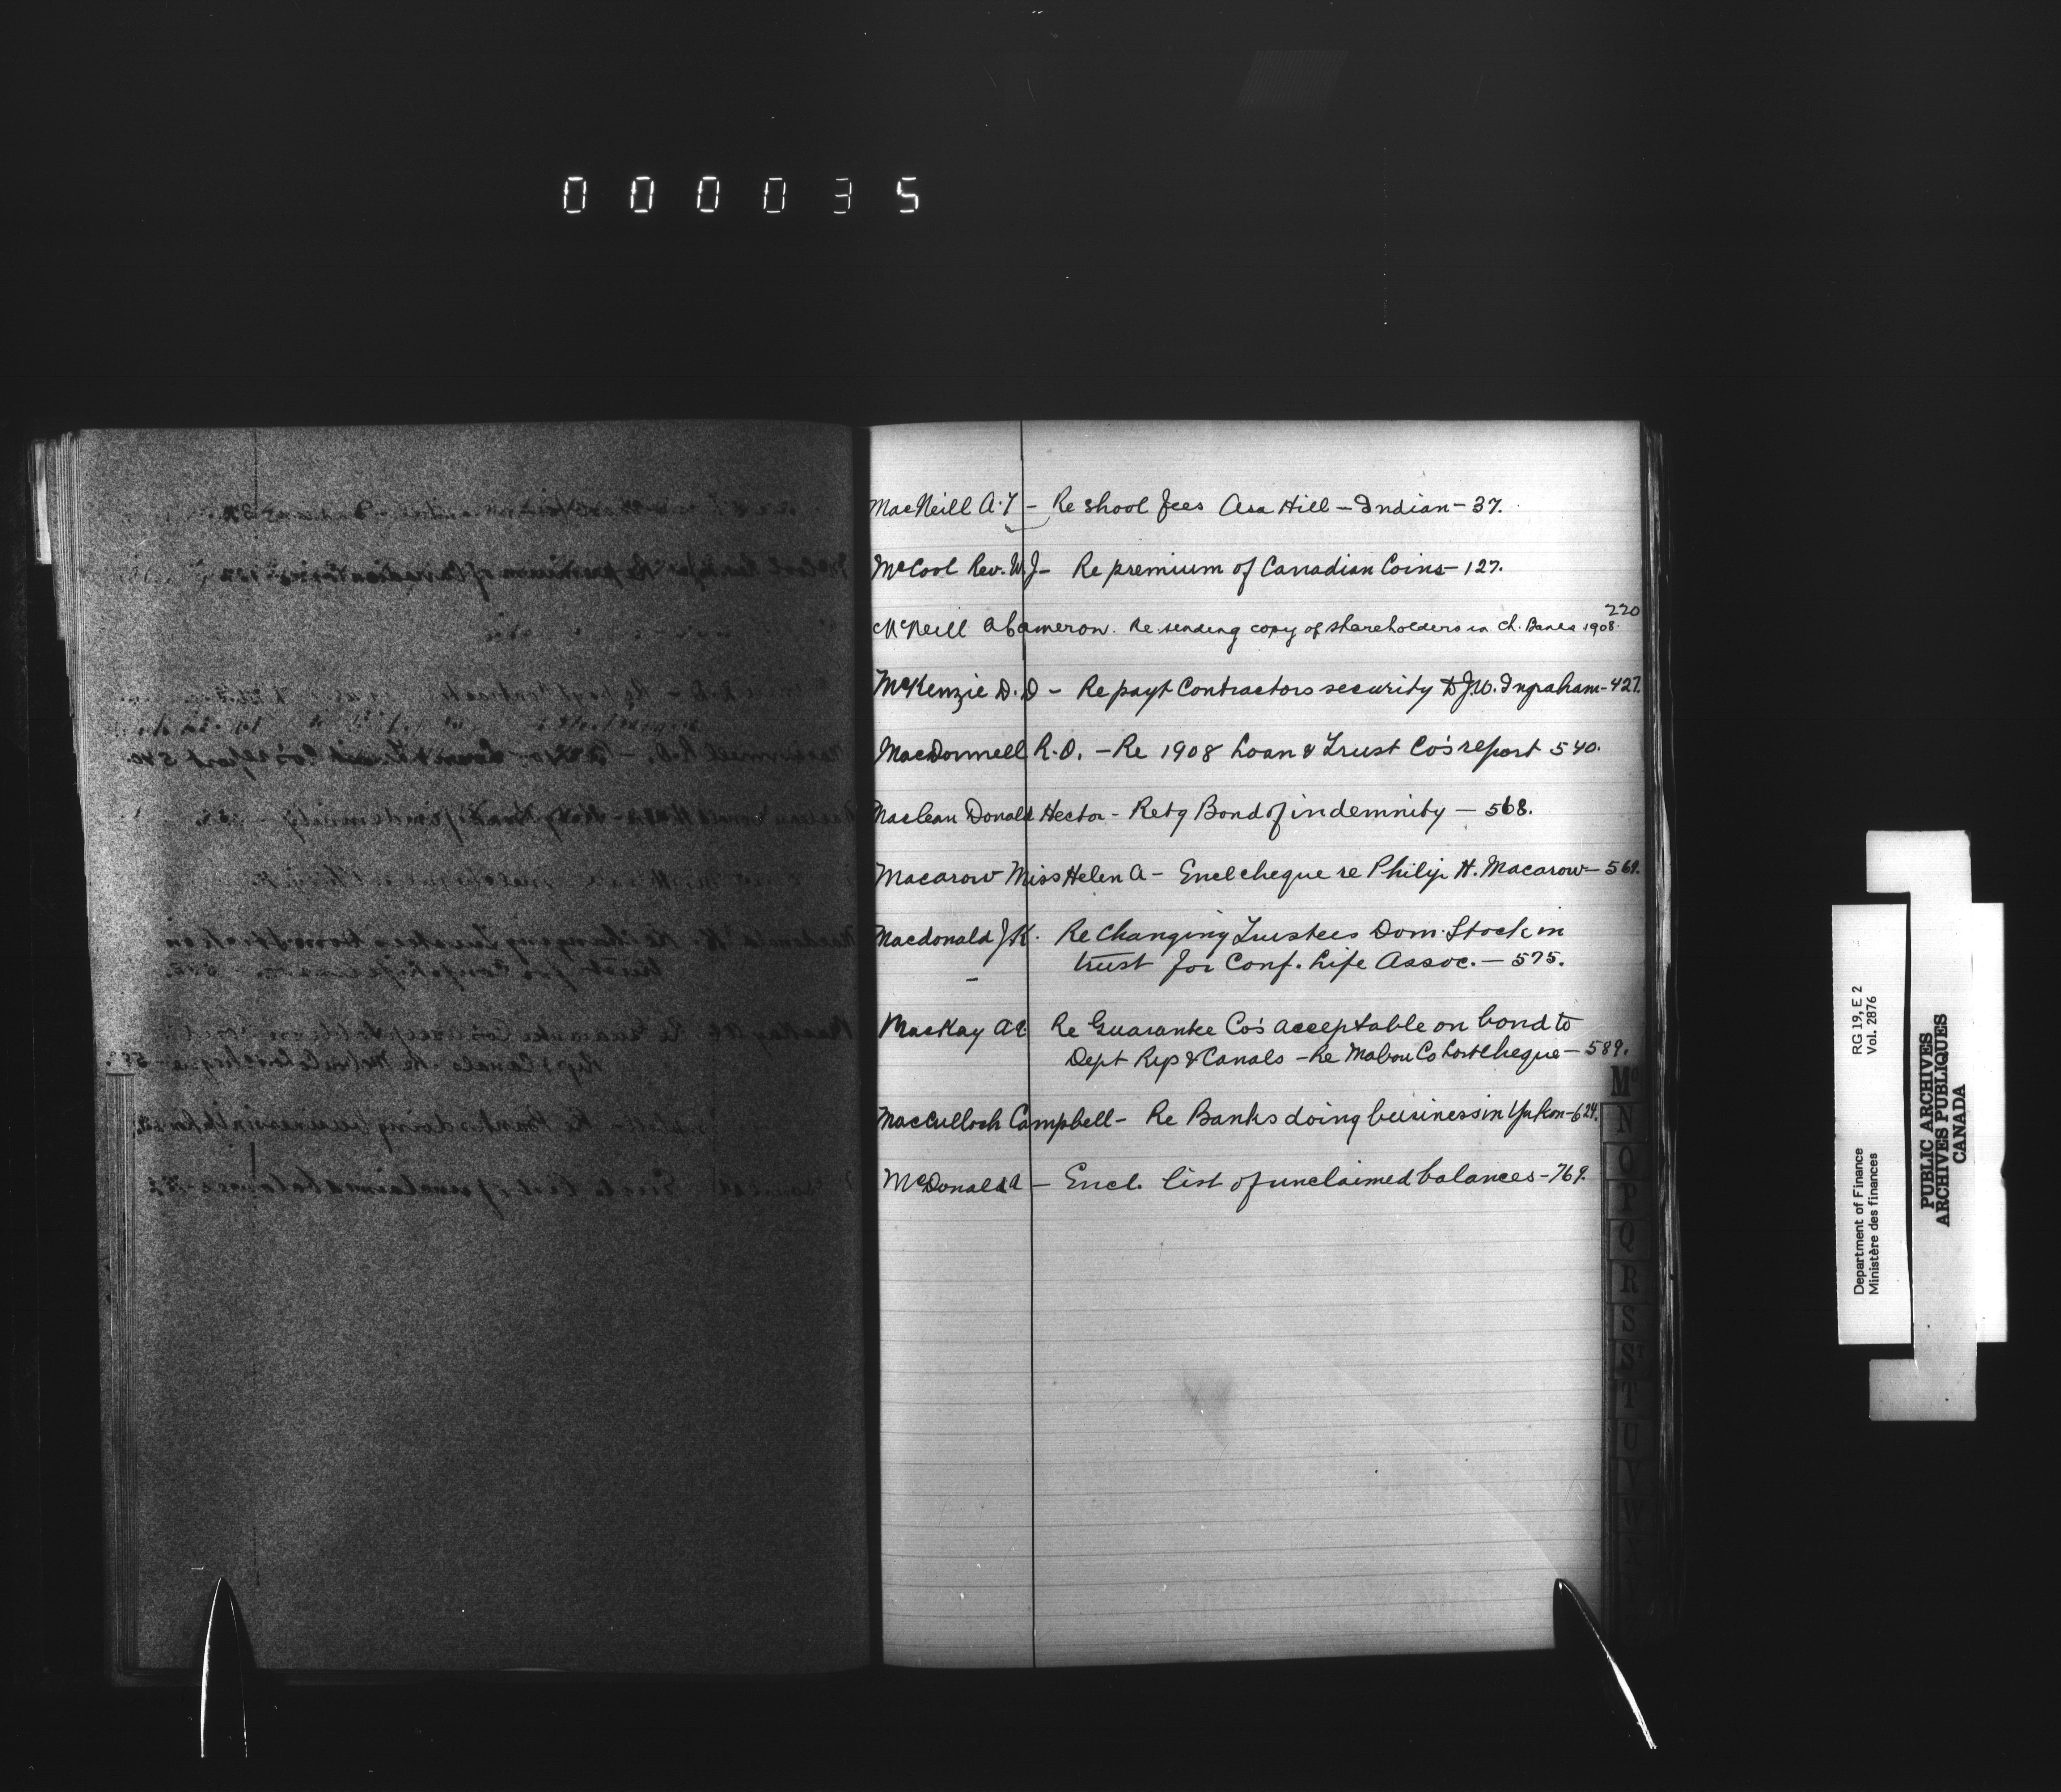 000035
MacNeill A.T - Re Shool fees Asa Hill - Indian - 37.
McCool Rev. W.J - Re premium of Canadian Coins - 127.
220
McNeill A Cameron. Re sending copy of shareholders in Ch. Banks 1908.
McKenzie D.D - Re payt Contractors security to J.W. Ingraham - 427.
MacDonnell R.O. - Re 1908 Loan & Trust Co's report 540.
Maclean Donald Hector - Retg Bond of indemnity - 568.
Macarow Miss Helen A - Encl cheque re Philip H. Macarow - 569.
Macdonald J.K. Re Changing Trustees Dom. Stock in
trust for Conf. Life Assoc. - 575.
MacKay A Re Guarantee Co's acceptable on bond to
Dept Rys & Canals - Re Mabou Co Lost Cheque - 589.
MacCulloch Campbell - Re Banks doing business in Yukon - 624.
McDonald A - Encl. list of unclaimed balances - 769.
Mc
N
O
P
Q
R
S
ST
T
U
V
W
RG 19, E 2
Vol. 2876
Department of Finance
Ministère des finances
PUBLIC ARCHIVES
ARCHIVES PUBLIQUES
CANADA